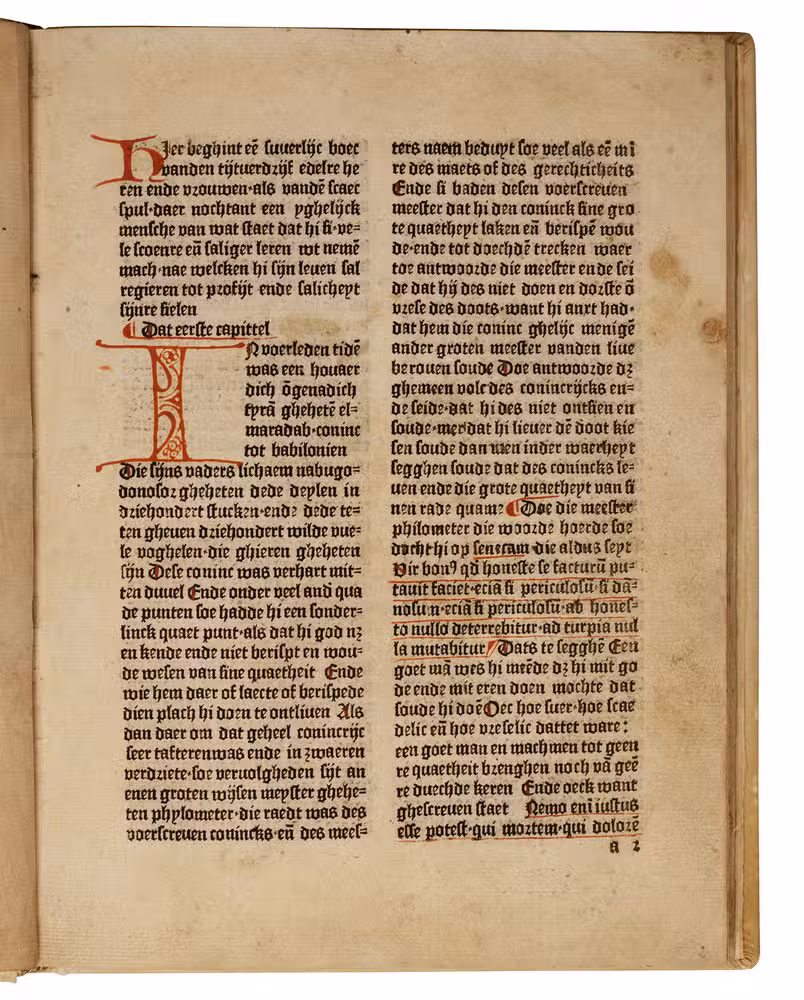 Hier beghint eē suuerlijc boec
vanden tijtuerdrijf edelre he
ren ende vrouwen·als vandē scaec
spul·daer nochtant een yghelijck
mensche van wat staet dat hi si·ve⸗
le scoenre eñ saliger leren wt nemē
mach·nae welcken hi sijn leuen sal
regieren tot profijt ende salicheyt
sijnre sielen
¶ Dat eerste capittel
IN voerleden tidē
was een houaer
dich ōgenadich
tyrā ghehetē el⸗
maradab·coninc
tot babilonien
Die sijns vaders lichaem nabugo⸗
donosor gheheten dede deylen in
driehondert stucken·ende dede te⸗
ten gheuen driehondert wilde vue⸗
le voghelen·die ghieren gheheten
sijn Dese coninc was verhart mit⸗
ten duuel Ende onder veel and qua
de punten soe hadde hi een sonder⸗
linck quaet punt·als dat hi god nꝫ
en kende ende niet berispt en wou⸗
de wesen van sine quaetheit Ende
wie hem daer of laecte of berispede
dien plach hi doen te ontliuen Als
dan daer om dat geheel conincrijc
seer tafterenwas ende in zwaeren
verdriete·soe vervolgheden sijt an
enen groten wijsen meyster ghehe⸗
ten phylometer·die raedt was des
voerscreuen conincks·eñ des mees⸗
ters naem beduyt soe veel als eē mi
re des maets of des gerechticheits
Ende si baden desen voerscreuen
meester dat hi den coninck sine gro
te quaetheyt laken eñ berispē wou
de·ende tot doechdē trecken waer
toe antwoorde die meester ende sei
de dat hijs niet doen en dorste ō
vrese des doots·want hi anxt had·
dat hem die coninc ghelijc menigē
ander groten meester vanden liue
berouen soude Doe antwoorde dꝫ
ghemeen volc des conincrijcks en⸗
de seide·dat hi des niet ontsien en
soude·mer dat hi lieuer dē doot kie
sen soude dan men inder waerheyt
segghen soude dat des conincks le⸗
uen ende die grote quaetheyt van si
nen rade quame ¶Doe die meester
philometer die woorde hoerde soe
docht hi op senecam·die aldus seyt
Vir bonꝰ qđ honeste se facturū pu⸗
tauit faciet·eciā si periculosū·si dā⸗
nosum·eciā si periculosū·ab hones⸗
to nullo deterrebitur·ad turpia nul
la mutabitur/ Dats te segghē Een
goet mā wes hi meēde dꝫ hi mit go
de ende mit eren doen mochte dat
soude hi doē Oec hoe suer·hoe scae
delic eñ hoe vreselic dattet ware:
een goet man en machmen tot geen
re quaetheit brenghen noch vā geē
re duechde keren Ende oeck want
ghescreuen staet Nemo eni iustus
esse potest·qui mortem·qui dolorē
a 2